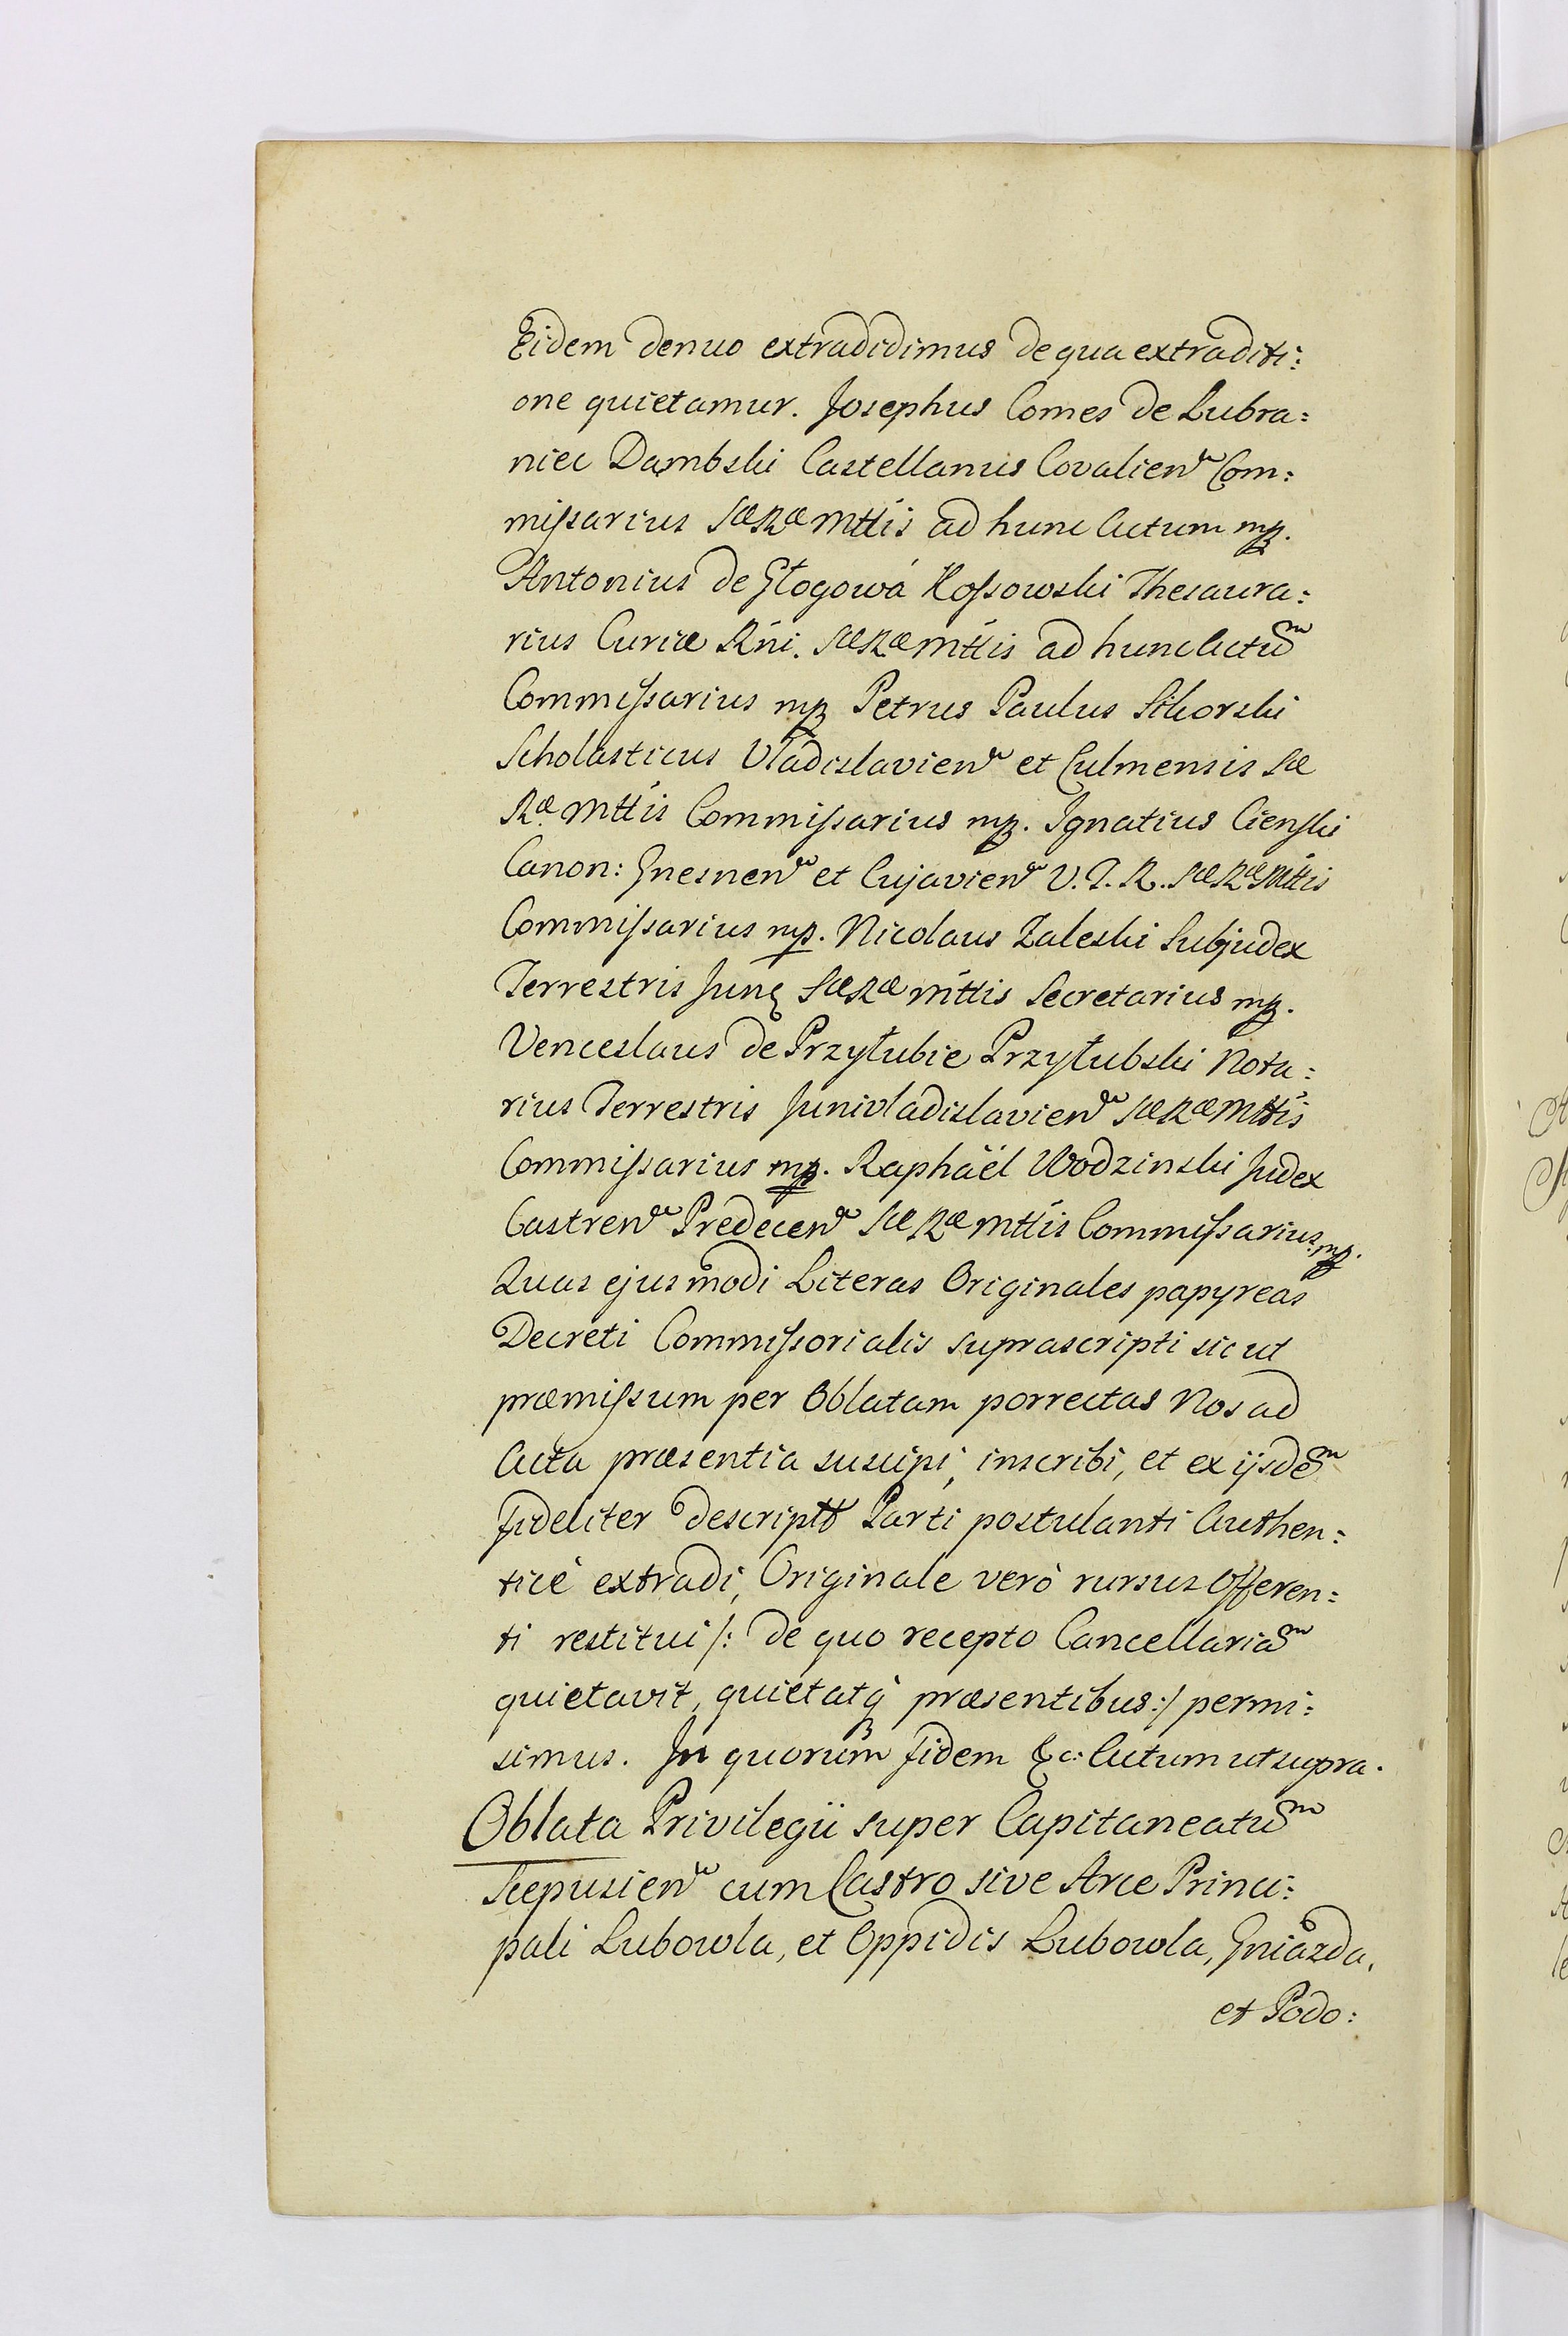 Eidem denuo extradidimus de qua extraditi:
one quietamur. Josephus Comes de Lubra:
niec Dąmbski Castellanus Covalien Com:
missarius SæRæMttis ad hunc Actum mp.
Antonius de Głogowá Kossowski Thesaura:
rius Curiæ Rni. SæRæMttis ad hunc Actum
Commissarius mp Petrus Paulus Sikorski
Scholasticus Vladislavien et Culmensis Sæ
Ræ Mttis Commissarius mp. Ignatius Cienski
Canon: Gnesnen et Cujavien V. J. R. SæRæMttis
Commissarius mp. Nicolaus Zaleski Subjudex
Terrestris Junę SæRæ Mttis Secretarius mp.
Venceslaus de Przyłubie Przyłubski Nota:
rius Terrestris Junivladislavien SæRæMttis
Commissarius mp. Raphaël Wodzinski Judex
Castren Predecen SæRæMttis Commissarius mp.
Quas ejusmodi Literas Originales papyreas
Decreti Commissorialis suprascripti sicut
præmissum per Oblatam porrectas Nos ad
Acta præsentia suscipi, inscribi, et ex ijsdem
fideliter descriptt Parti postulanti Authen:
ticè extradi, Originale verò rursus Offeren:
ti restitui /: de quo recepto Cancellariam
quietavit, quietatq præsentibus :/ permi:
simus. In quorum fidem &c: Actum ut supra.
Oblata Privilegii super Capitaneatum
Scepusien cum Castro sive Arce Princi:
pali Lubowla, et Oppidis Lubowla, Gniazda,
et Podo: